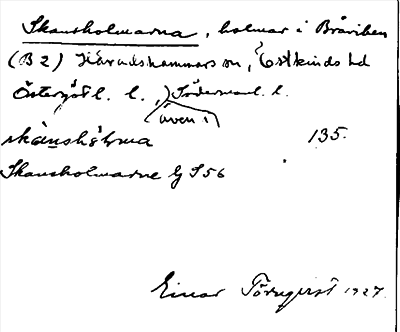 Skansholmarna, holmar i Bråviken
(B 2) Häradshammars sn, Östkinds hd
Östergötl. l., Södermanl. l.
(även i)
skànshòlma 135.
Skansholmarne G S 56
Einar Törnqvist 1927.